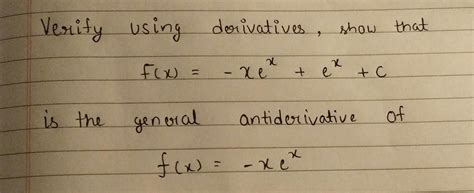 Verify using derivatives, show that
F(x) = -xeˣ + eˣ + c
is the general antiderivative of
f(x) = -xeˣ